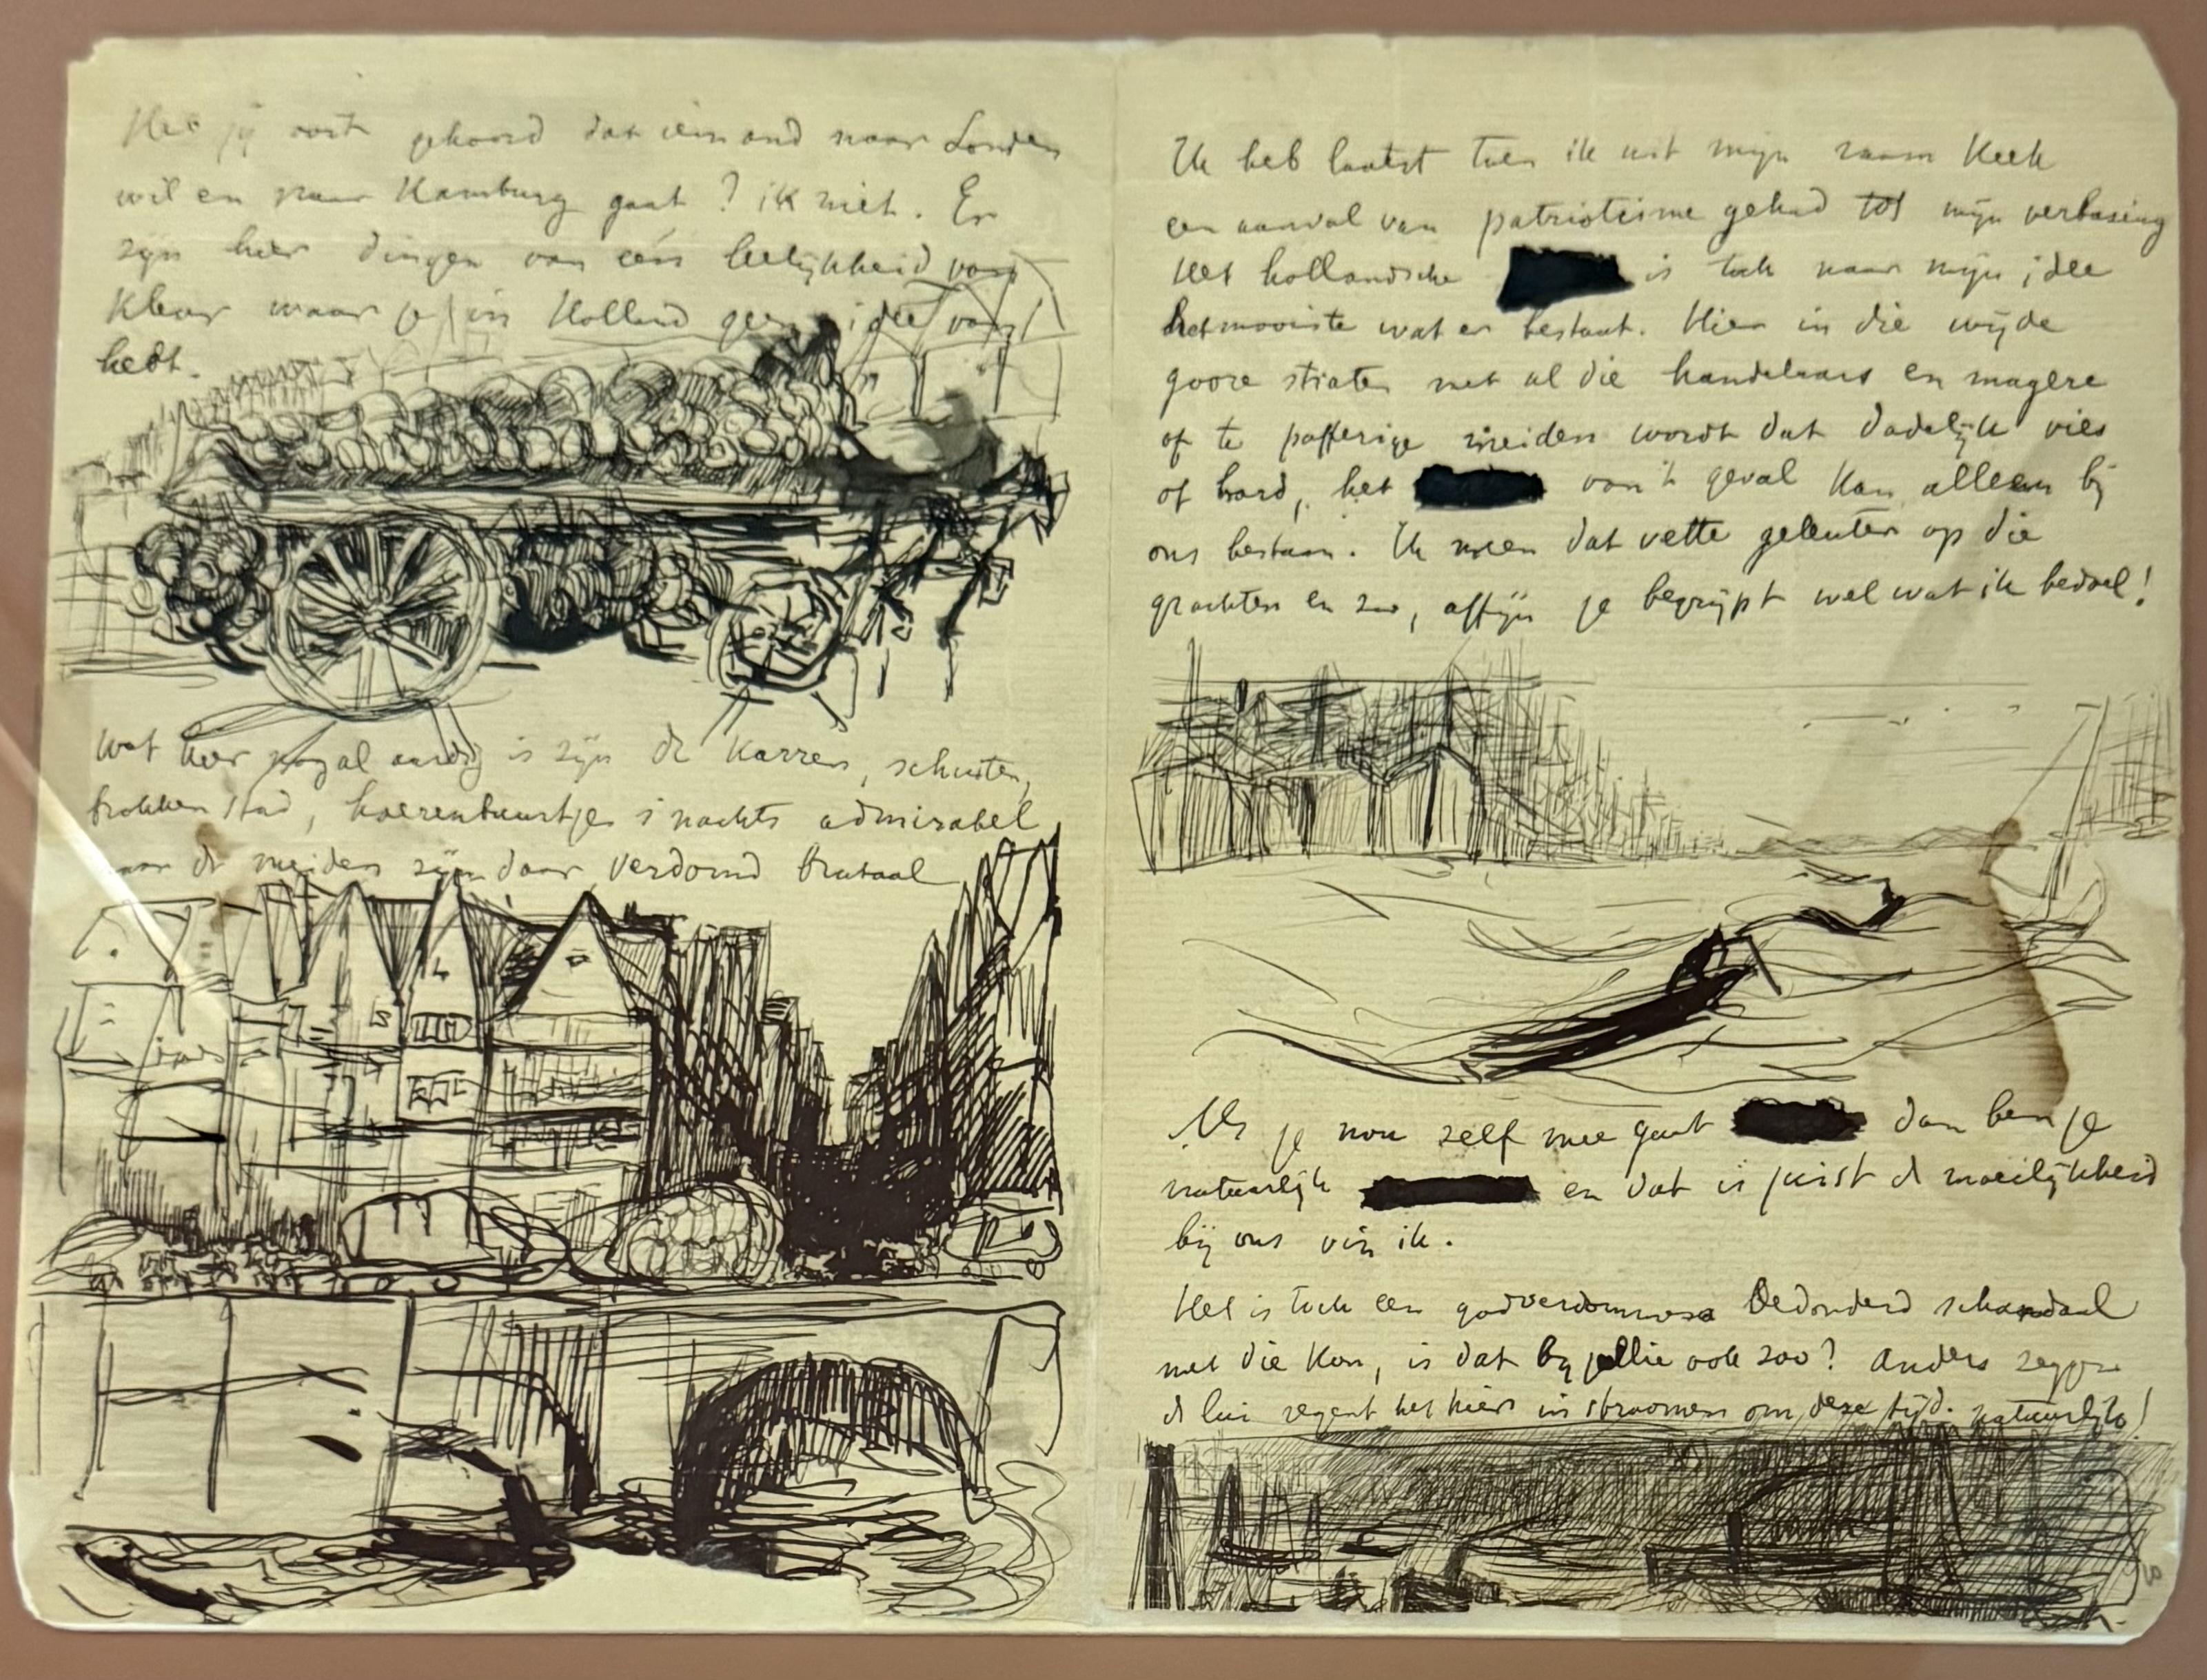 Heb jij ooit gehoord dat iemand naar Londen
wil en naar Hamburg gaat? ik niet. Er
zijn hier dingen van een leelijkheid van
kleur waar je in Holland geen idee van
hebt.
Wat hier nogal aardig is zijn de karren, schuiten,
brokken stad, hoerenbuurtjes s'nachts admirabel
maar de meiden zijn daar verdomd brutaal
Ik heb laatst toen ik uit mijn raam keek
een aanval van patriotisme gehad tot mijn verbasing
Het hollandsche is toch naar mijn idee
het mooiste wat er bestaat. Hier in die wijde
goore straten met al die handelaars en magere
of te pafferige meiden wordt dat dadelijk vies
of hard, het van 't geval kan alleen bij
ons bestaan. Ik meen dat vette geleuter op die
grachten en zoo, affijn je begrijpt wel wat ik bedoel!
Als je nou zelf mee gaat dan ben je
natuurlijk en dat is juist de moeilijkheid
bij ons vin ik.
Het is toch een godverdommese bedonderd schandaal
met die kou, is dat bij jullie ook zoo? Anders zeggen
de lui regent het hier in stroomen om deze tijd. natuurlijk!